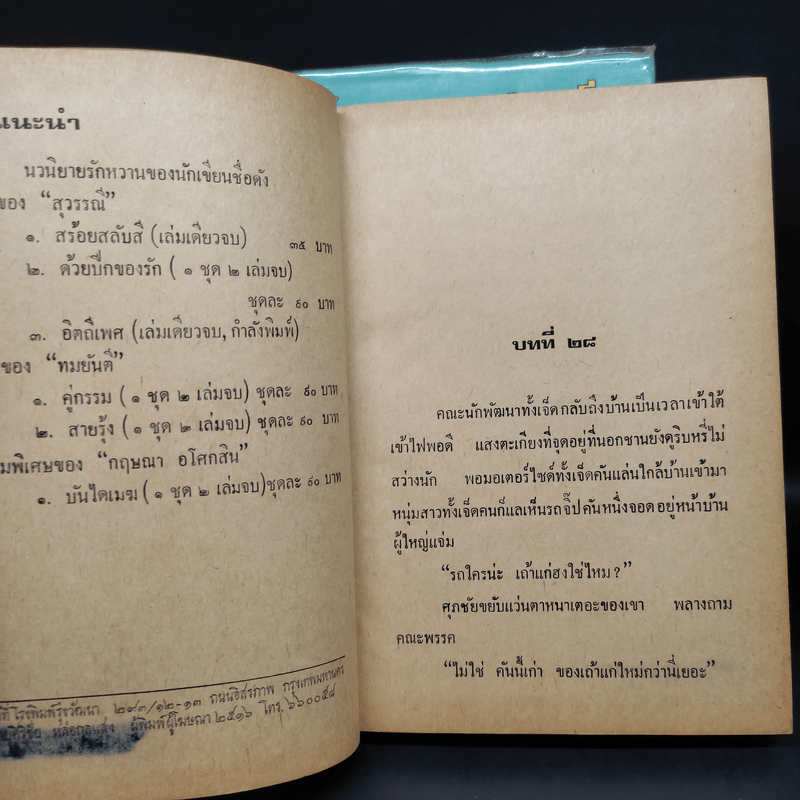 แนะนำ
นวนิยายรักหวานของนักเขียนชื่อดัง
ของ “สุวรรณี”
๑. สร้อยสลับสี (เล่มเดียวจบ) ๓๕ บาท
๒. ด้วยปีกของรัก ( ๑ ชุด ๒ เล่มจบ)
ชุดละ ๕๐ บาท
๓. อิตถีเพศ (เล่มเดียวจบ, กำลังพิมพ์)
ของ “ทมยันตี”
๑. คู่กรรม ( ๑ ชุด ๒ เล่มจบ) ชุดละ ๕๐ บาท
๒. สายรุ้ง ( ๑ ชุด ๒ เล่มจบ) ชุดละ ๕๐ บาท
มพิเศษของ “กฤษณา อโศกสิน”
๑. บันไดเมฆ ( ๑ ชุด ๒ เล่มจบ)ชุดละ ๕๐ บาท
ที่ โรงพิมพ์รุ่งวัฒนา ๒๙๓/๑๒-๑๓ ถนนอิสรภาพ กรุงเทพมหานคร
ผู้พิมพ์ผู้โฆษณา ๒๕๑๖ โทร. ๖๖๐๐๕๘
บทที่ ๒๘
คณะนักพัฒนาทั้งเจ็ดกลับถึงบ้านเป็นเวลาเข้าใต้
เข้าไฟพอดี แสงตะเกียงที่จุดอยู่ที่นอกชานยังดูริบหรี่ไม่
สว่างนัก พอมอเตอร์ไซค์ทั้งเจ็ดคันแล่นใกล้บ้านเข้ามา
หนุ่มสาวทั้งเจ็ดคนก็แลเห็นรถจิ๊ปคันหนึ่งจอดอยู่หน้าบ้าน
ผู้ใหญ่แจ่ม
“รถใครน่ะ เถ้าแก่ฮงใช่ไหม ?”
ศุภชัยขยับแว่นตาหนาเตอะของเขา พลางถาม
คณะพรรค
“ไม่ใช่ คันนี้เก่า ของเถ้าแก่ใหม่กว่านี่เยอะ”